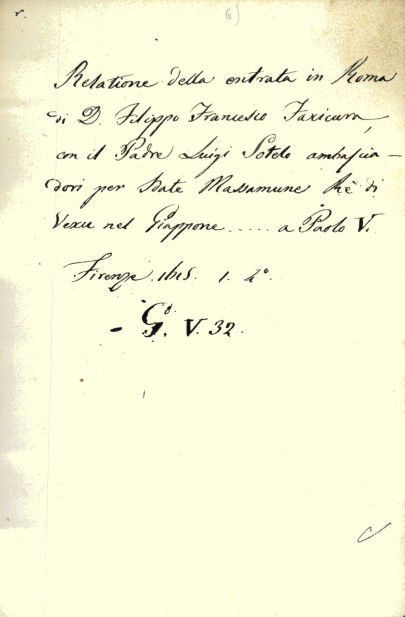 r.
6)
Relatione della entrata in Roma
di D. Filippo Francesco Faxicura,
con il Padre Luigi Sotelo ambascia-
dori per Idate Massamune Rè di
Vexu nel Giappone ..... a Paolo V.
Firenze. 1615. 1. 4°.
- G°. V. 32.